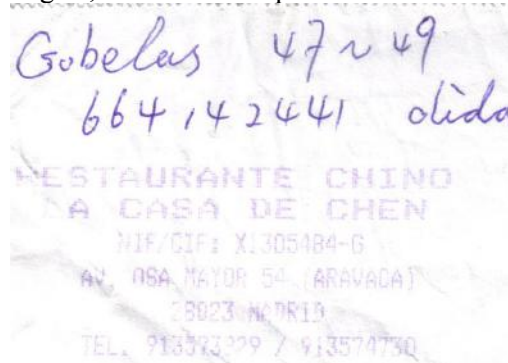 Gobelas 47 ~ 49
664142441 olido
RESTAURANTE CHINO
LA CASA DE CHEN
NIF/CIF: X1305484-G
AV. OSA MAYOR 54 (ARAVACA)
28023 MADRID
TEL. / 913574730